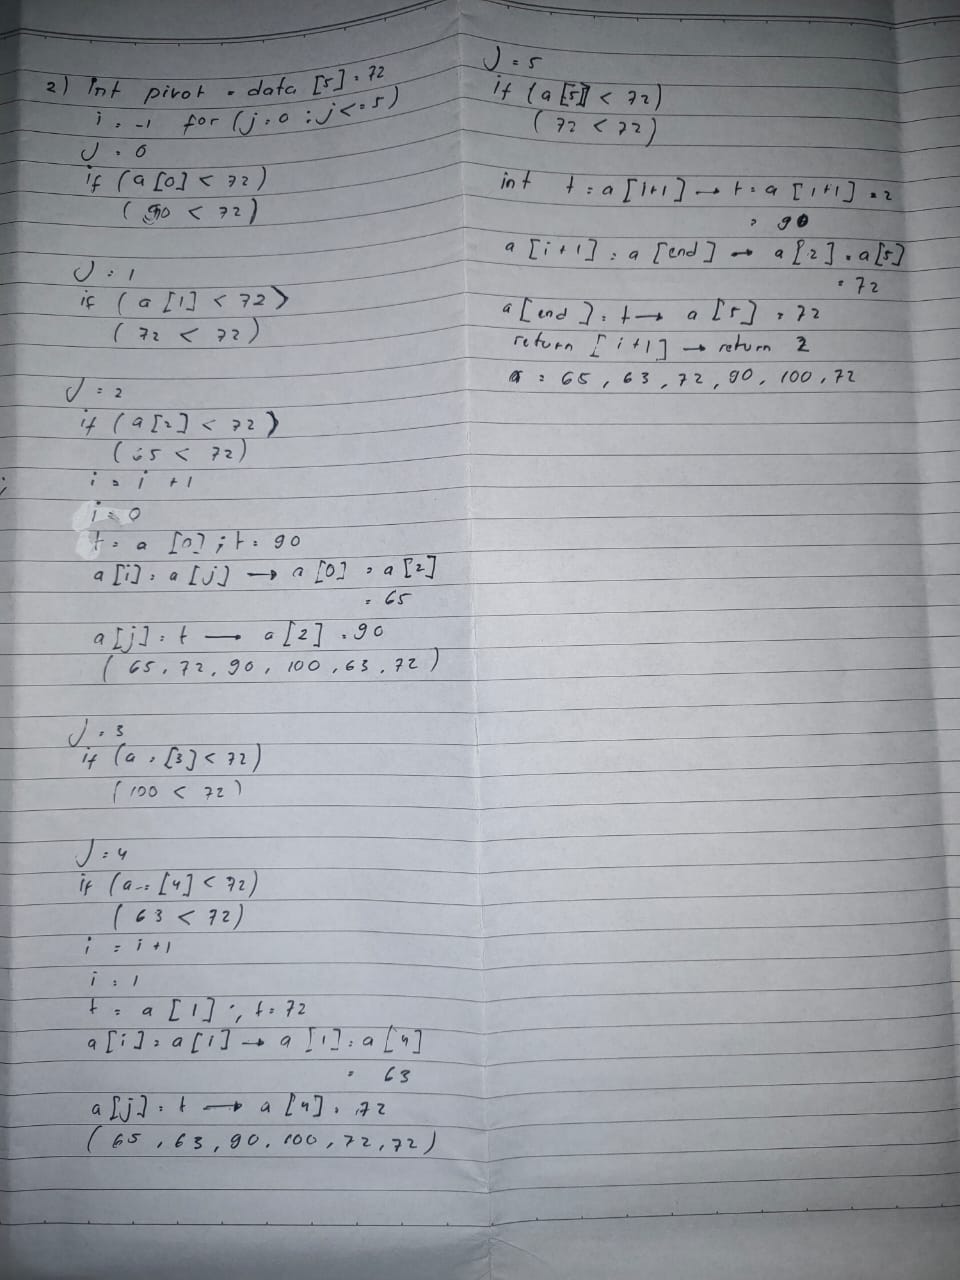 2) Int pivot = data [5] = 72
i = -1 for (j=0 ; j<=5)
J = 0
if (a[0] < 72)
(90 < 72)
J = 1
if (a[1] < 72)
(72 < 72)
J = 2
if (a[2] < 72)
(65 < 72)
i = i +1
i = 0
t = a [0] ; t = 90
a[i] = a[j] → a[0] = a[2]
= 65
a[j] = t → a[2] = 90
(65, 72, 90, 100, 63, 72)
J = 3
if (a = [3] < 72)
(100 < 72)
J = 4
if (a = [4] < 72)
(63 < 72)
i = i +1
i = 1
t = a [1] ; t = 72
a[i] = a[i] → a[1] = a[4]
= 63
a[j] = t → a[4] = 72
(65, 63, 90, 100, 72, 72)
J = 5
if (a[5] < 72)
(72 < 72)
int t = a[1+1] → t = a [1+1] = 2
= 90
a[i+1] = a[end] → a[2] = a[5]
= 72
a[end] = t → a[5] = 72
return [i+1] → return 2
a = 65, 63, 72, 90, 100, 72